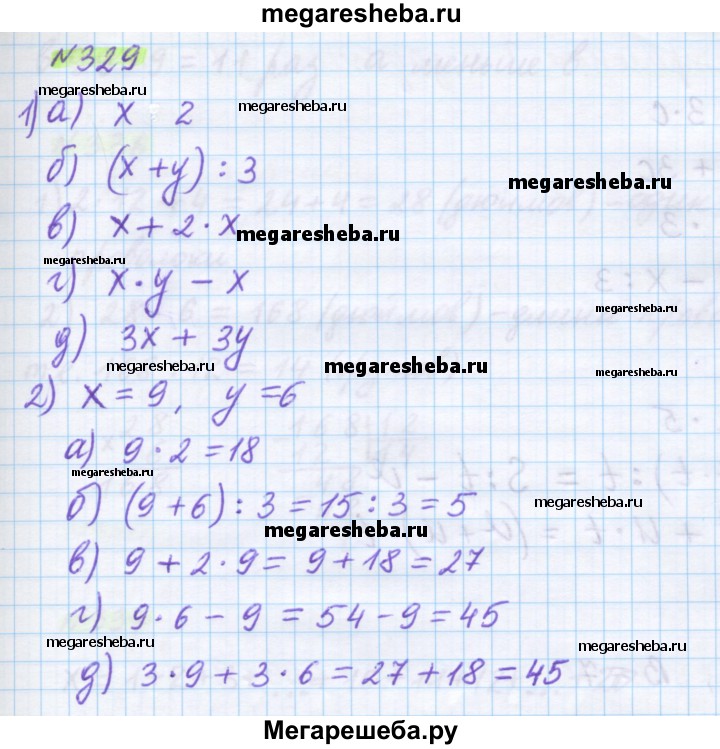 megaresheba.ru
№329
megaresheba.ru
megaresheba.ru
1) а) x 2
б) (x + y) : 3
megaresheba.ru
в) x + 2 · x
megaresheba.ru
megaresheba.ru
г) x · y − x
д) 3x + 3y
megaresheba.ru
megaresheba.ru
megaresheba.ru
2) x = 9, y = 6
а) 9 · 2 = 18
megaresheba.ru
б) (9 + 6) : 3 = 15 : 3 = 5
megaresheba.ru
megaresheba.ru
в) 9 + 2 · 9 = 9 + 18 = 27
г) 9 · 6 − 9 = 54 − 9 = 45
megaresheba.ru
megaresheba.ru
д) 3 · 9 + 3 · 6 = 27 + 18 = 45
Мегарешеба.ру